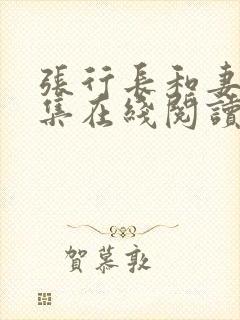 張行長和妻
集在綫閱讀
賀慕敦